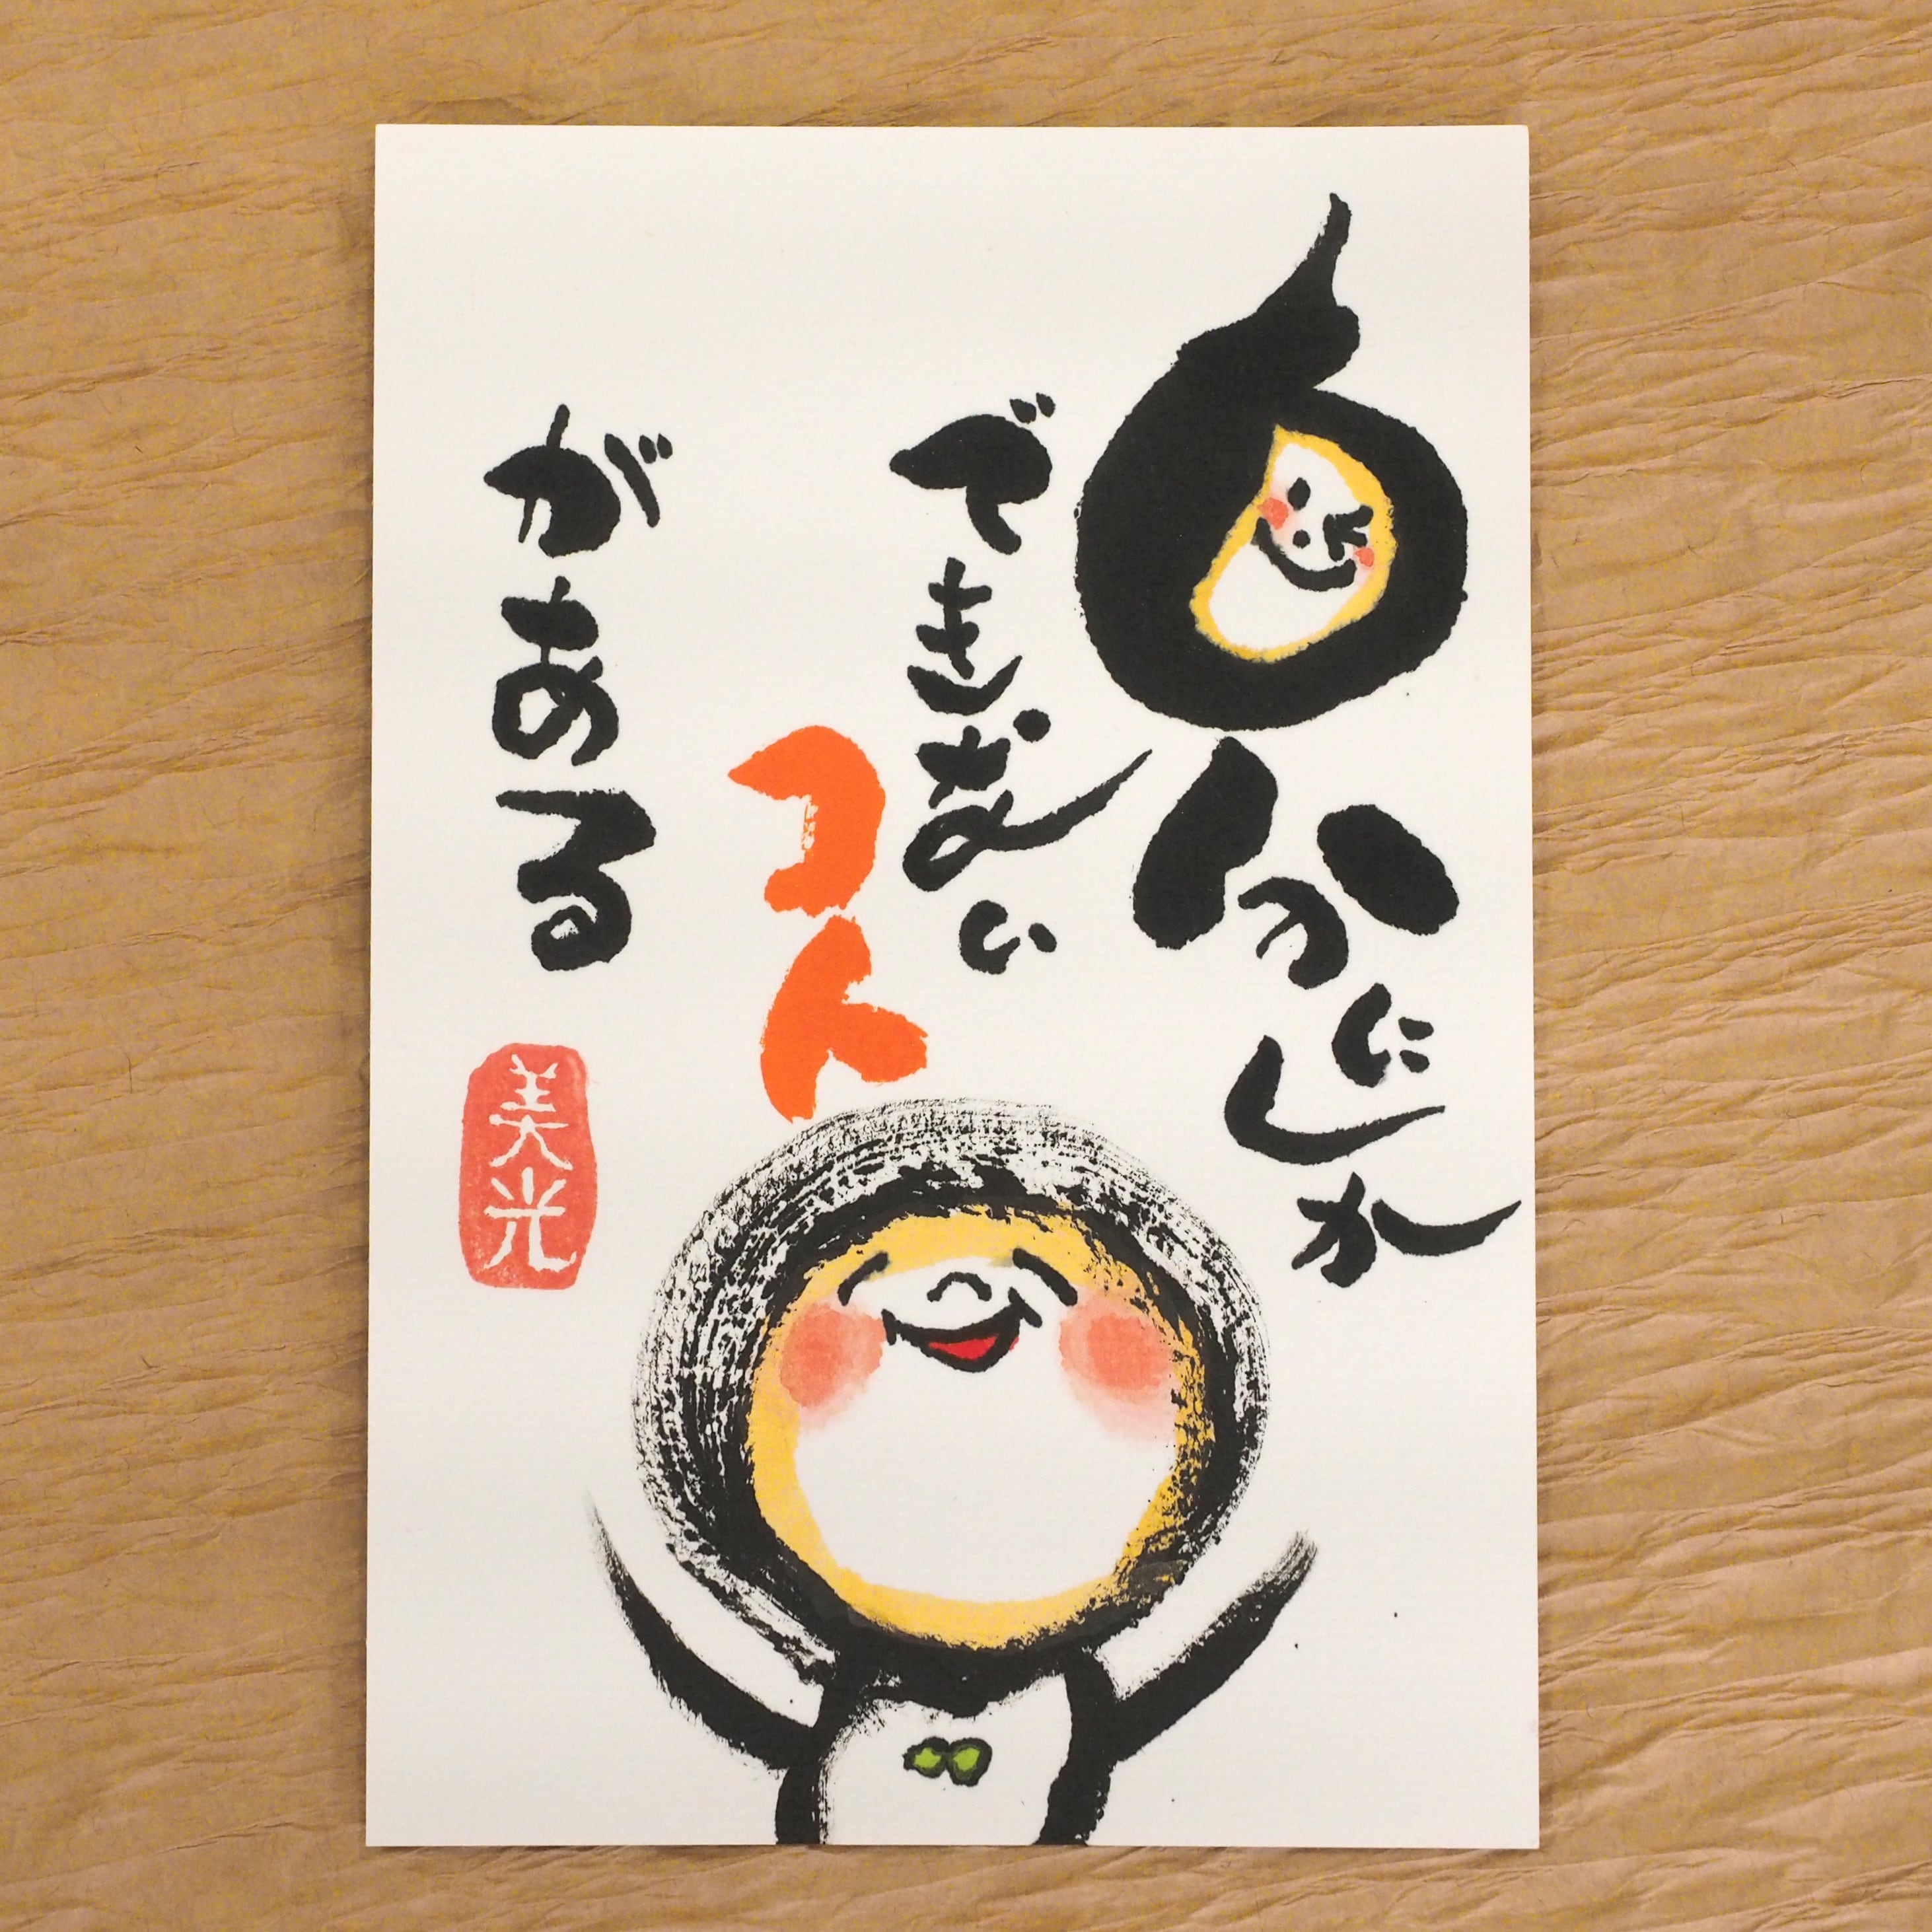 自分にしか
できない
コト
がある
美光